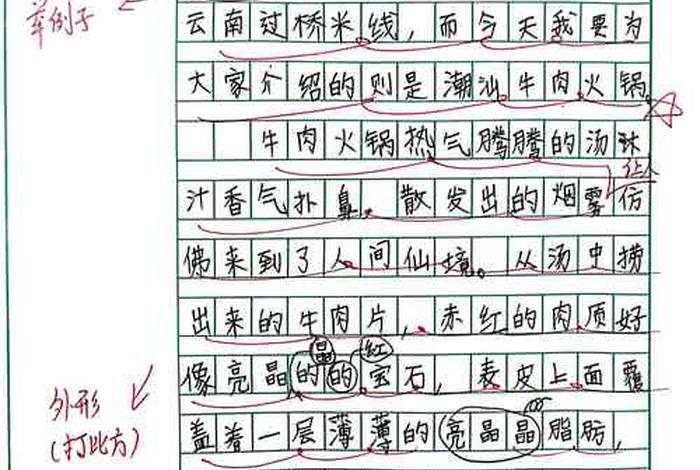 举例子
云南过桥米线，而今天我要为
大家介绍的则是潮汕牛肉火锅。
牛肉火锅热气腾腾的汤
让人
汁香气扑鼻，散发出的烟雾仿
佛来到了人间仙境。从汤中捞
出来的牛肉片，赤红的肉质好
晶 红
像亮晶的的宝石，表皮上面覆
外形
(打比方)
盖着一层薄薄的亮晶晶脂肪，